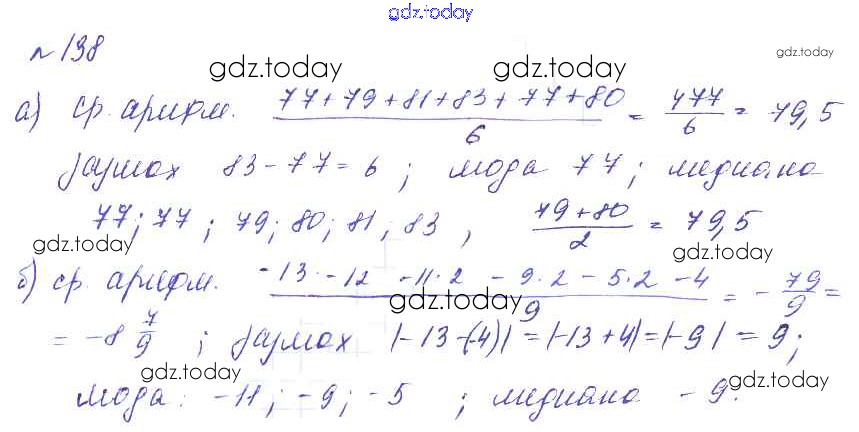 gdz.today
№ 198
gdz.today
gdz.today gdz.today
а) ср. арифм. (77+79+81+83+77+80)/6 = 477/6 = 79,5
размах 83-77=6; мода 77; медиана
77; 77; 79; 80; 81, 83, (79+80)/2 = 79,5
gdz.today gdz.today
б) ср. арифм. (-13 - 12 -11·2 - 9·2 - 5·2 -4)/9 = - 79/9 =
gdz.today
= -8 7/9; размах |-13-(-4)| = |-13+4| = |-9| = 9;
gdz.today gdz.today gdz.today
мода: -11; -9; -5; медиана - 9.